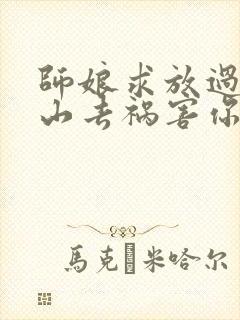 師娘求放過
山去禍害你
馬克 米哈尔